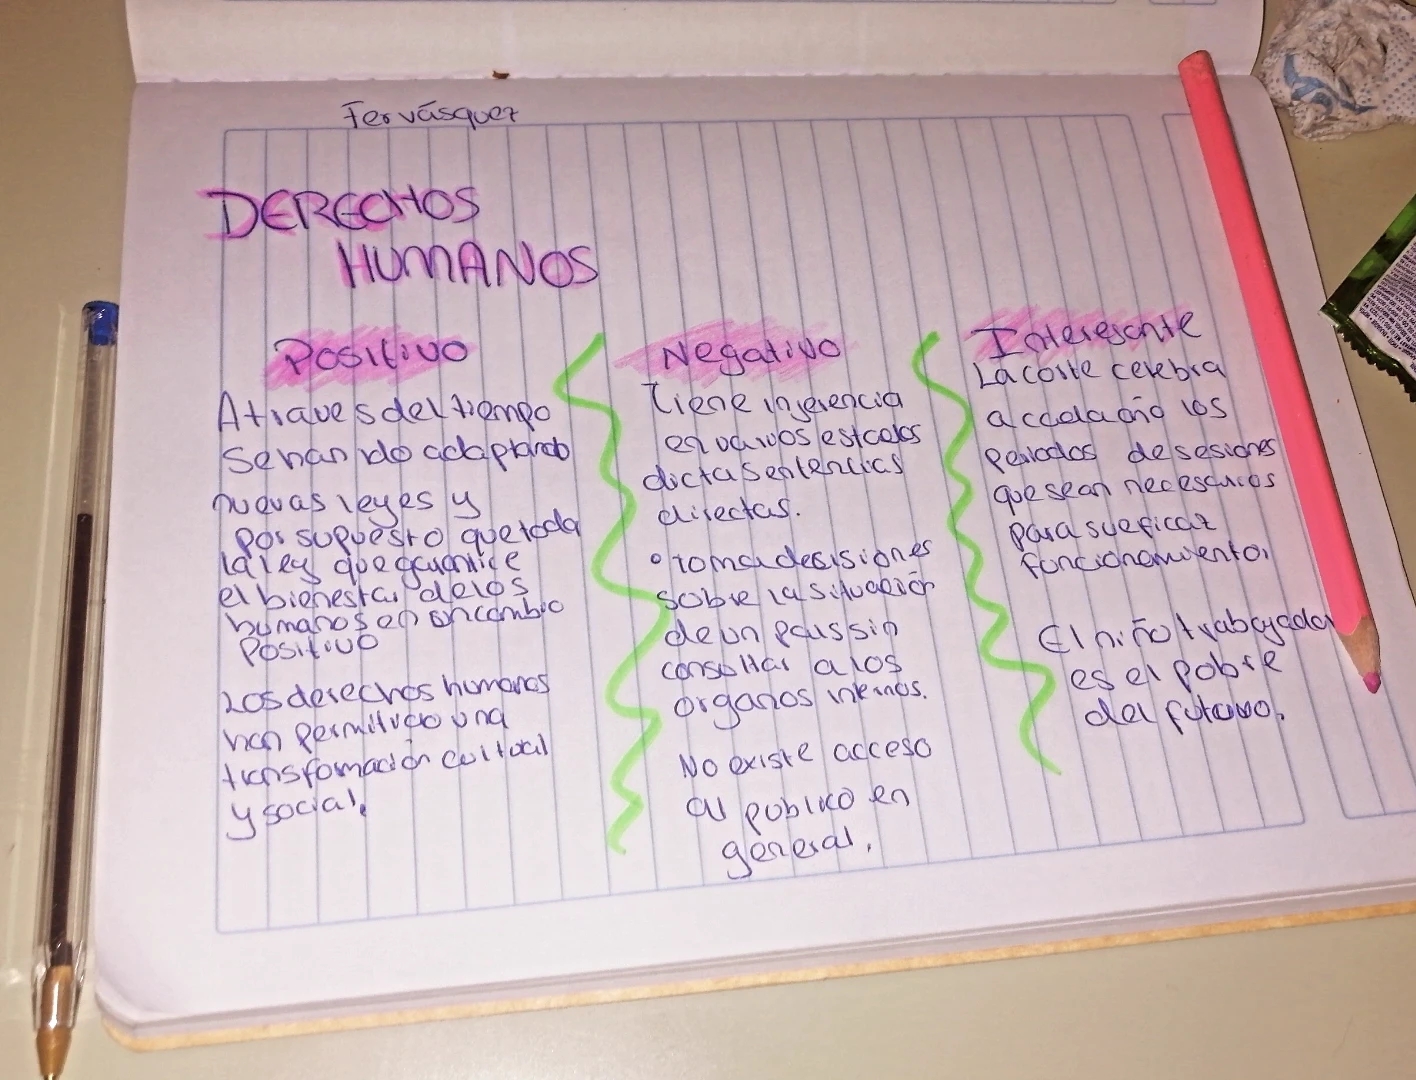 Fer vásquez
DERECHOS
HUMANOS
Positivo
Atraves del tiempo
se han ido adaptando
nuevas leyes y
por supuesto que toda
la ley que garantice
el bienestar de los
humanos en un cambio
Positivo
Los derechos humanos
han permitido una
transformación cultural
y social.
Negativo
Tiene injerencia
en varios estados
dicta sentencias
directas.
• toma desisiones
sobre la situación
de un pais sin
consultar a los
organos internos.
No existe acceso
al publico en
general.
Interesante
La corte celebra
a cada año los
periodos de sesiones
que sean necesarios
para su eficaz
funcionamiento.
El niño trabajador
es el pobre
del futuro.